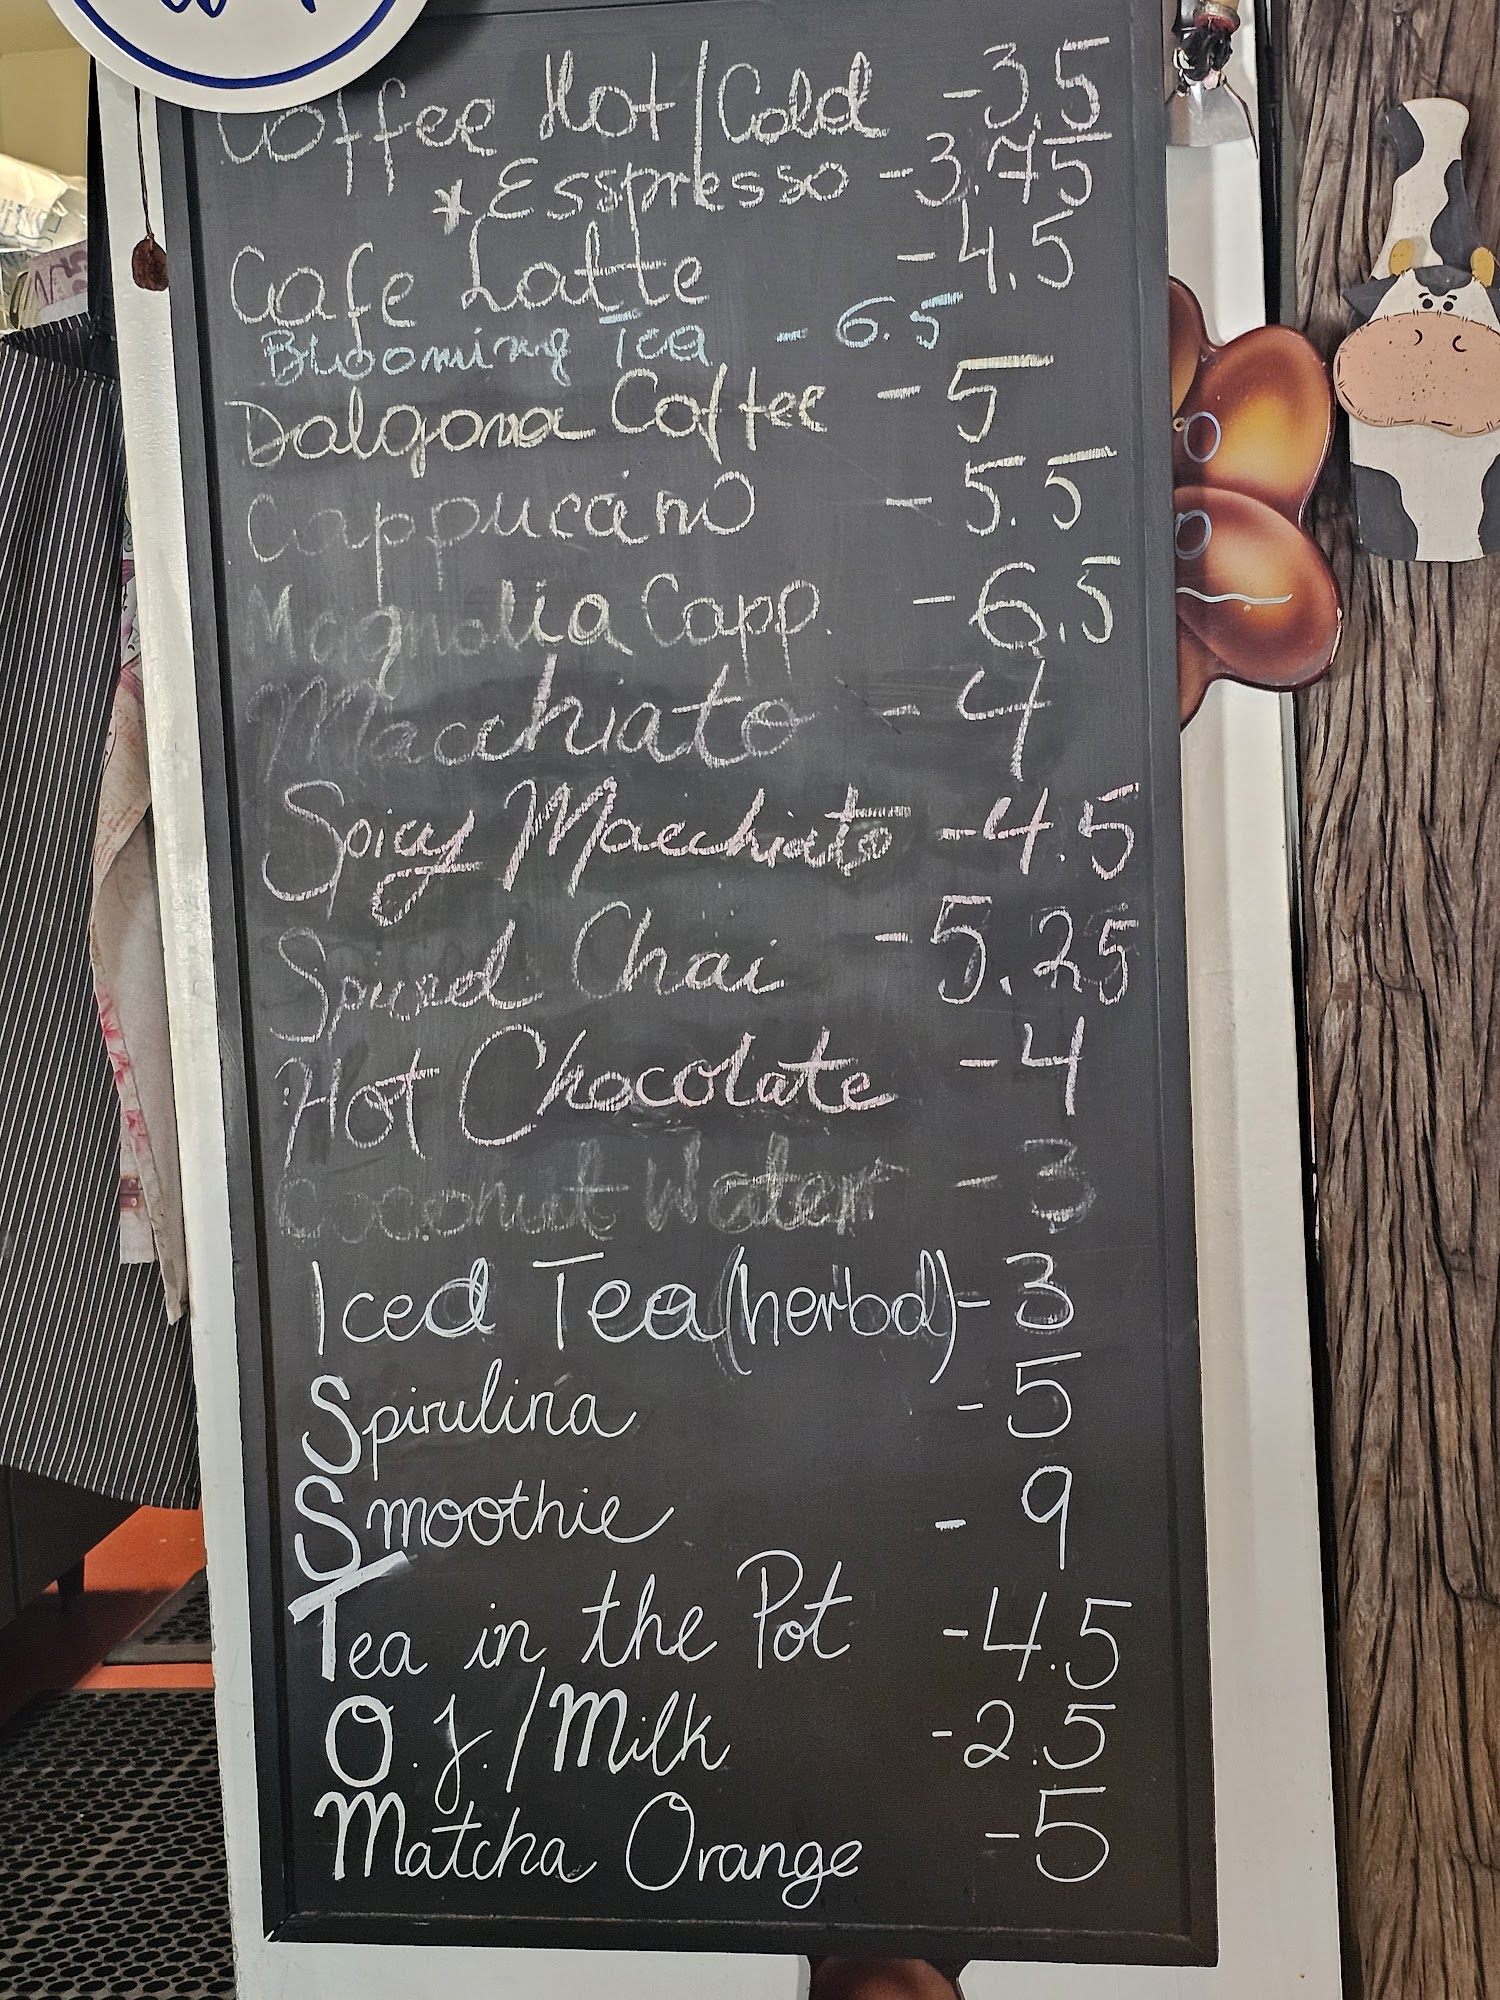 Coffee Hot/Cold -3.5
*Esspresso -3.75
Cafe Latte -4.5
Blooming Tea - 6.5
Dalgona Coffee -5
Cappucino -5.5
Magnolia Capp. -6.5
Macchiato -4
Spicy Macchiato -4.5
Spiced Chai -5.25
Hot Chocolate -4
Coconut Water -3
Iced Tea (herbal) -3
Spirulina -5
Smoothie - 9
Tea in the Pot -4.5
O.J./Milk -2.5
Matcha Orange -5